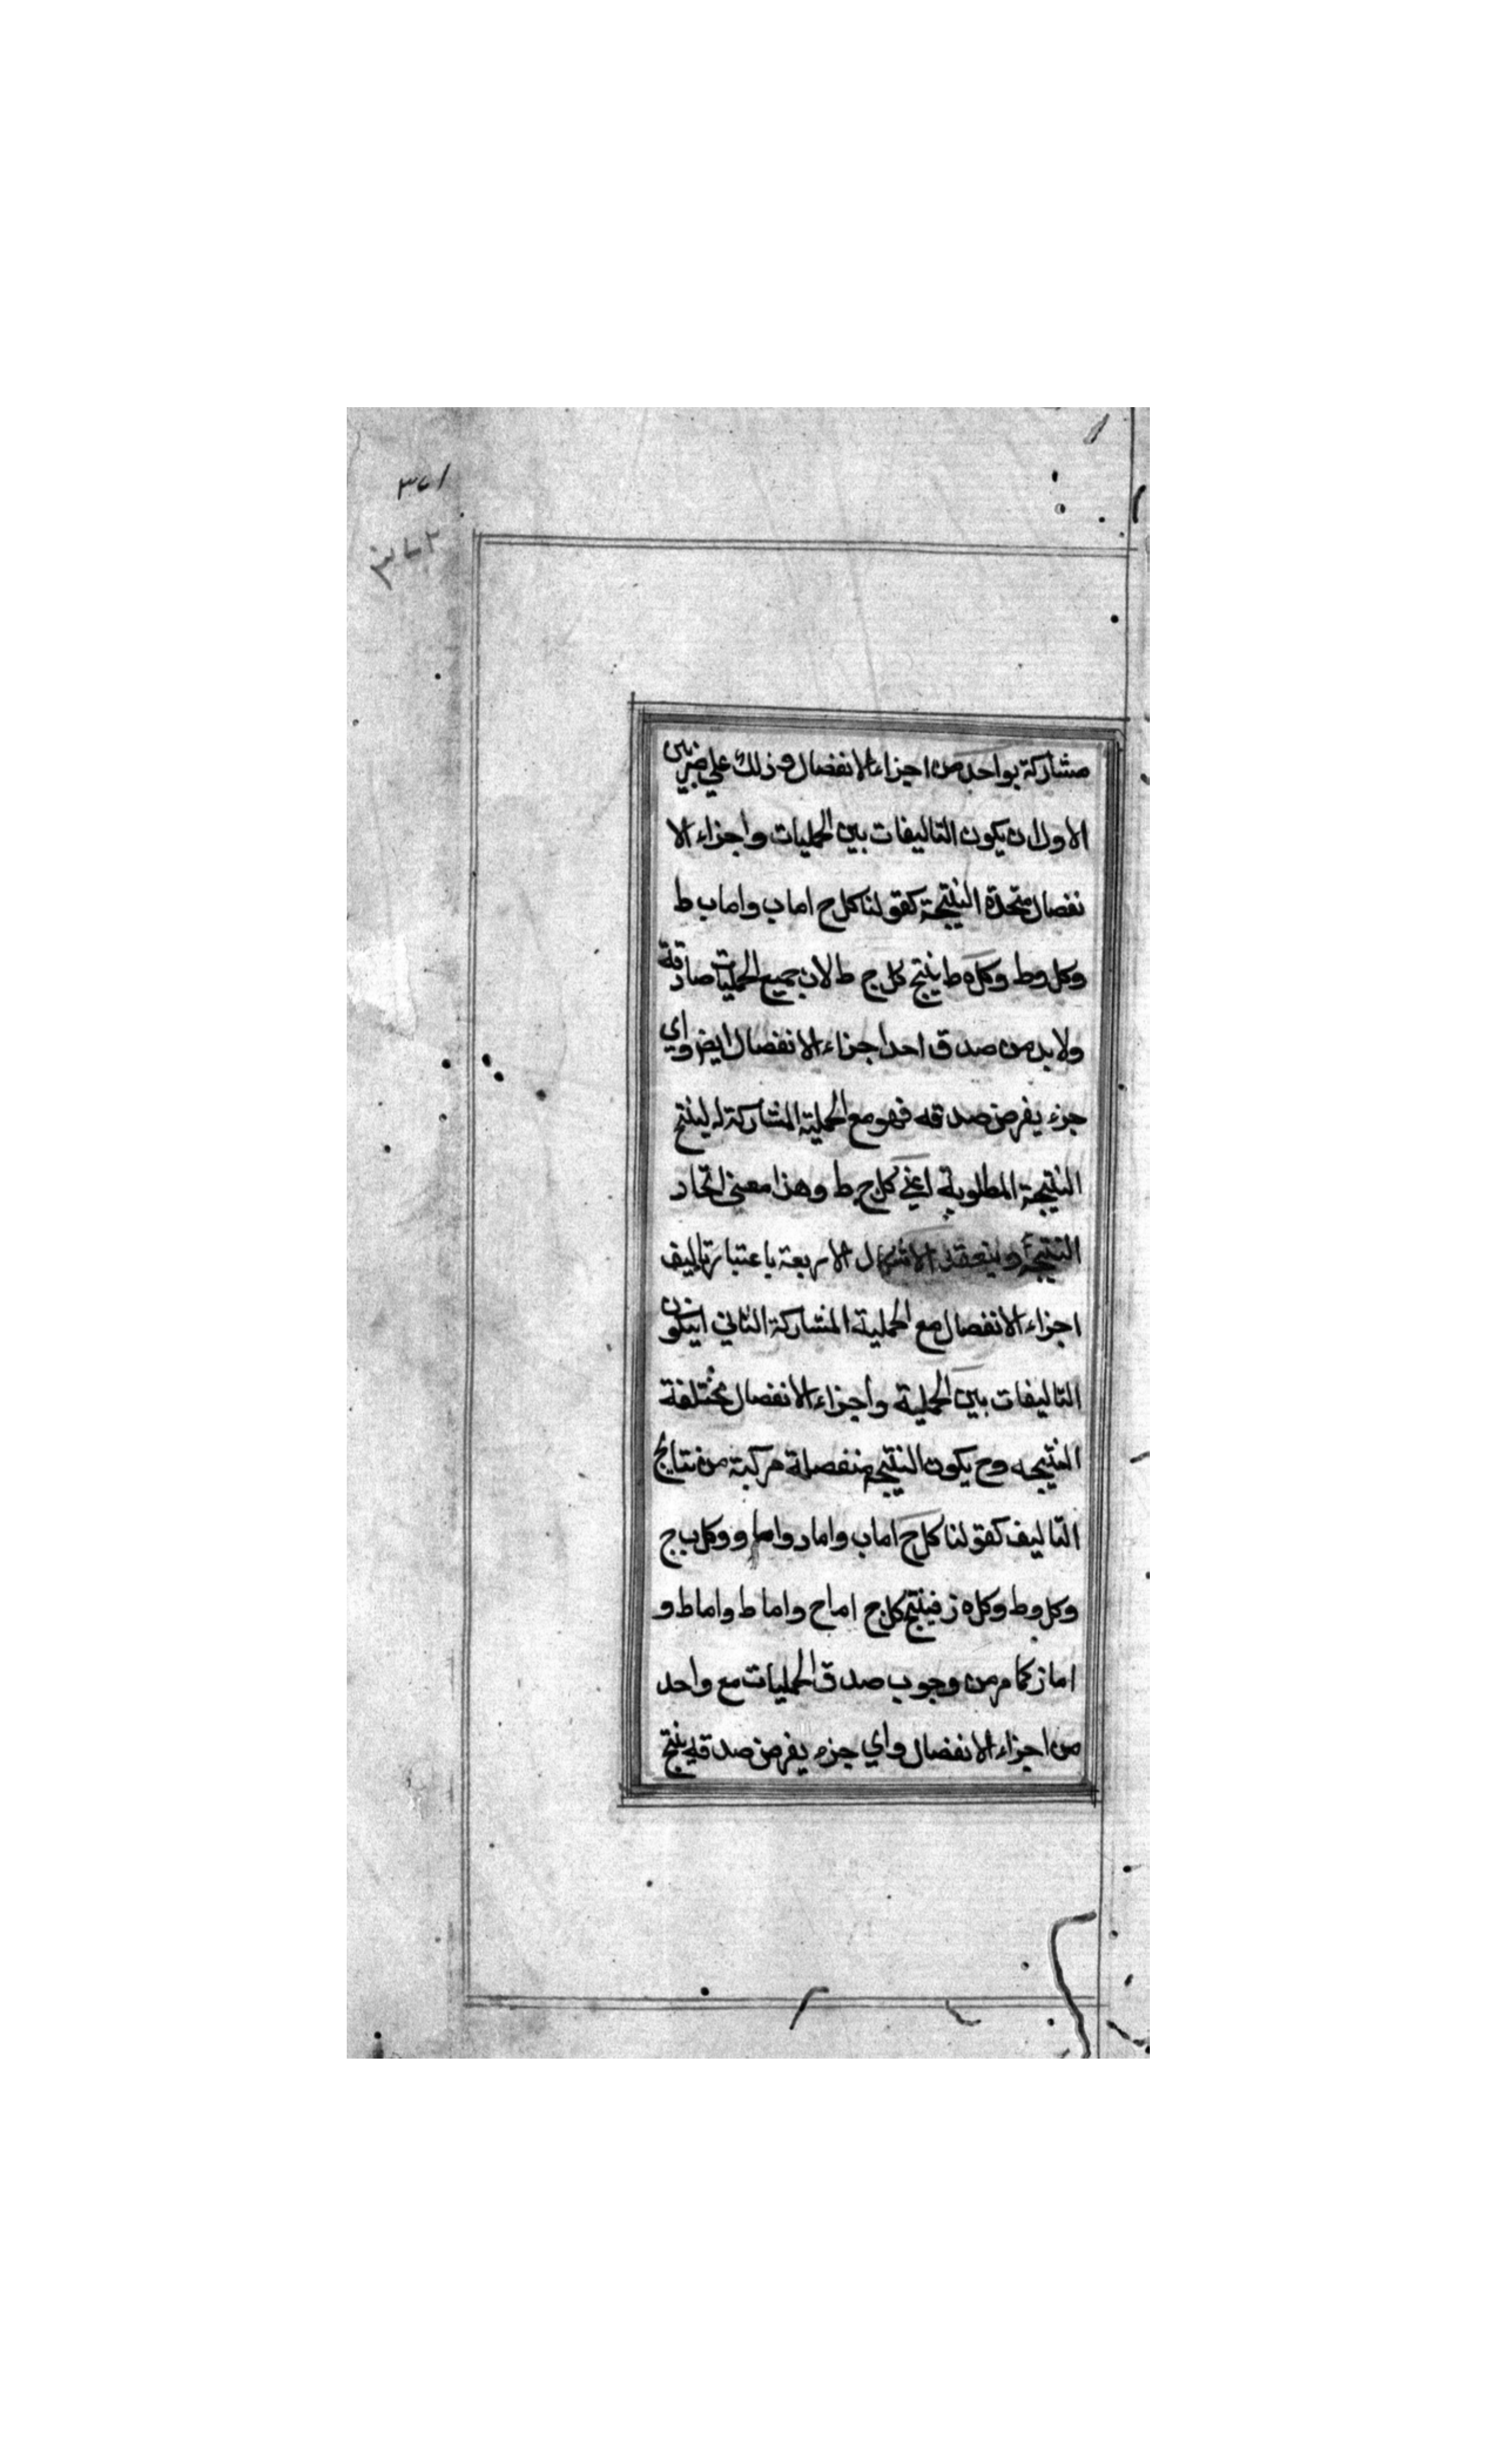 ٣٧١
٣٧٢
مشاركة بواحد من اجزاء الانفصال وذلك علي ضربين
الاول ان يكون التاليفات بين الحمليات واجزاء الا
نفصال متحدة النتيجة كقولنا كل ج اما ب واما ب ط
وكل وط وكل ه ط ينتج كل ج ط لان جميع الحمليات صادقة
ولابد من صدق احد اجزاء الانفصال ايض واي
جزء يفرض صدقه فهو مع الحملية المشاركة له ينتج
النتيجة المطلوبة اعني كل ج ط وهذا معني اتحاد
النتيجة وينعقد الاشكال الاربعة باعتبار تاليف
اجزاء الانفصال مع الحملية المشاركة الثاني ان يكون
التاليفات بين الحملية واجزاء الانفصال مختلفة
النتيجه وح يكون النتيجة منفصلة مركبة من نتايج
التاليف كقولنا كل ج اما ب واما د واما و وكل ب ج
وكل وط وكل ه ز فينتج كل ج اما ج واما ط واما ط و
اما ز كما مر من وجوب صدق الحمليات مع واحد
من اجزاء الانفصال واي جزء يفرض صدقه ينتج